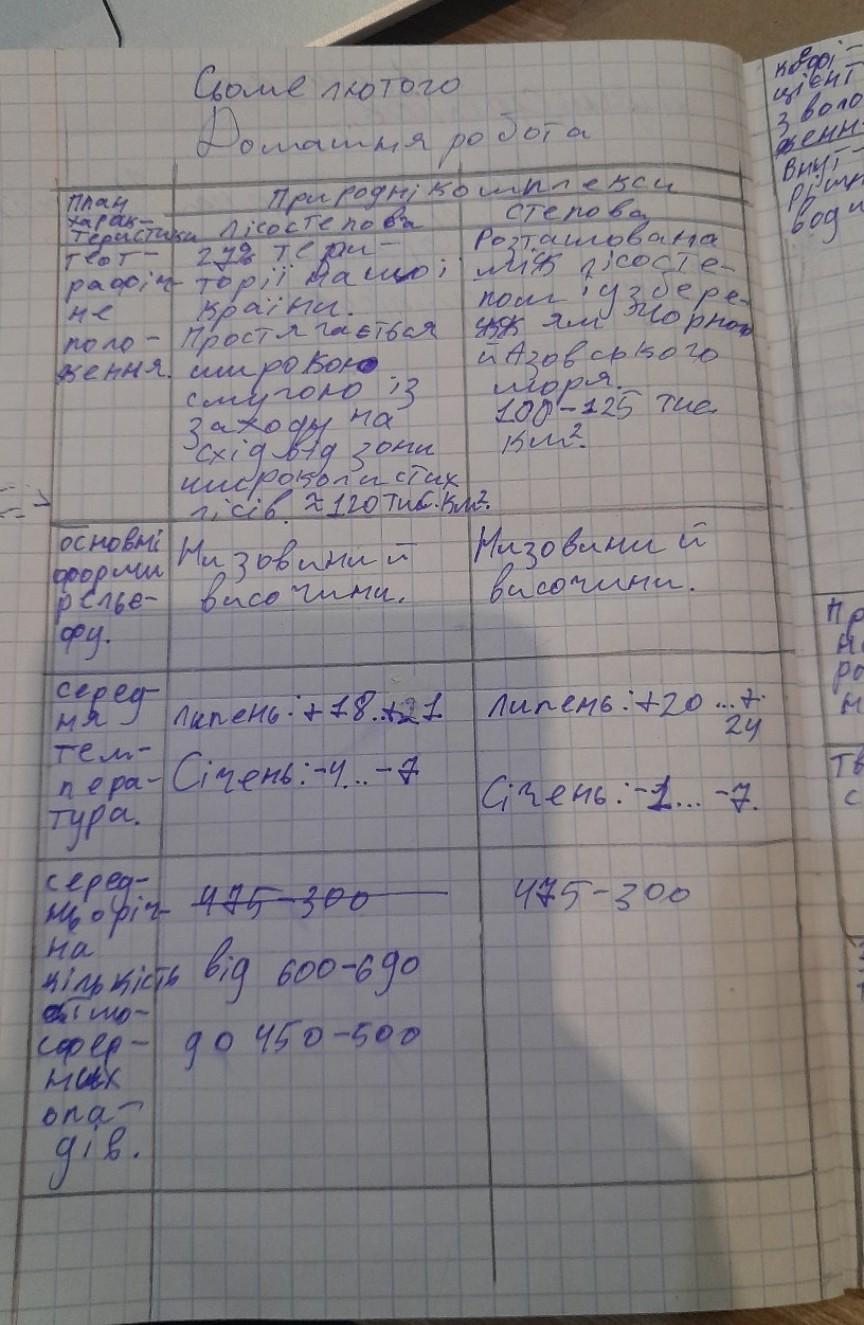 Сьоме лютого
Домашня робота
План
харак-
теристики
Природні комплекси
Лісостепова
степова
геог-
рафіч-
не
поло-
ження.
27% тери-
торії нашої
країни.
Простягається
широкою
смугою із
заходу на
схід від зони
широколистих
лісів. ≈120 тис. км².
Розташована
між лісосте-
пом і узбере-
жжям Чорного
й Азовського
моря.
100-125 тис.
км².
основні
форми
рельє-
фу.
Низовини й
височини.
Низовини й
височини.
серед-
ня
тем-
пера-
тура.
Липень: +18..+21
Січень: -4... -7
Липень: +20 ...+
24
Січень: -1... -7.
серед-
ньоріч-
на
кількість
атмо-
сфер-
них
опа-
дів.
475-300
від 600-690
до 450-500
475-300
з воло
женн
внут-
води